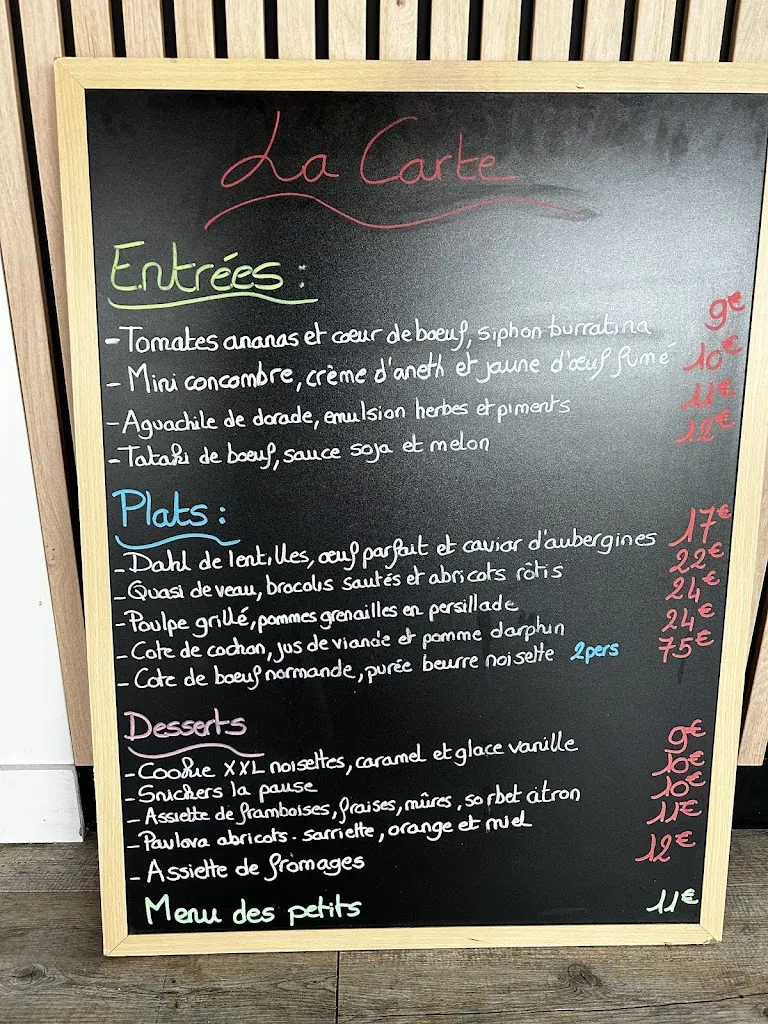 La Carte
Entrées :
- Tomates ananas et cœur de boeuf, siphon burratina 9€
- Mini concombre, crème d'aneth et jaune d'œuf fumé 10€
- Aguachile de dorade, emulsion herbes et piments 11€
- Tataki de boeuf, sauce soja et melon 12€
Plats :
- Dahl de lentilles, œuf parfait et caviar d'aubergines 17€
- Quasi de veau, brocolis sautés et abricots rôtis 22€
- Poulpe grillé, pommes grenailles en persillade 24€
- Cote de cochon, jus de viande et pomme darphin 24€
- Cote de boeuf normande, purée beurre noisette 2pers 75€
Desserts
- Cookie XXL noisettes, caramel et glace vanille 9€
- Snickers la pause 10€
- Assiette de framboises, fraises, mûres, sorbet citron 10€
- Pavlova abricots. sarriette, orange et miel 11€
- Assiette de fromages 12€
Menu des petits 11€